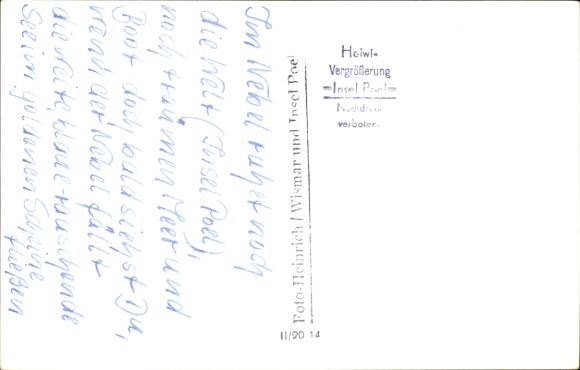 Im Nebel ruhet noch
die Welt (Insel Poel),
noch träumen Meer und
Boot doch bald siehst Du,
wenn der Nebel fällt
die weite, blaue-rauschende
See im goldenen Scheine
fließen
Foto-Heinrich / Wismar und Insel Poel
II/20 14
Heiwi-
Vergrößerung
=Insel Poel=
Nachdruck
verboten.